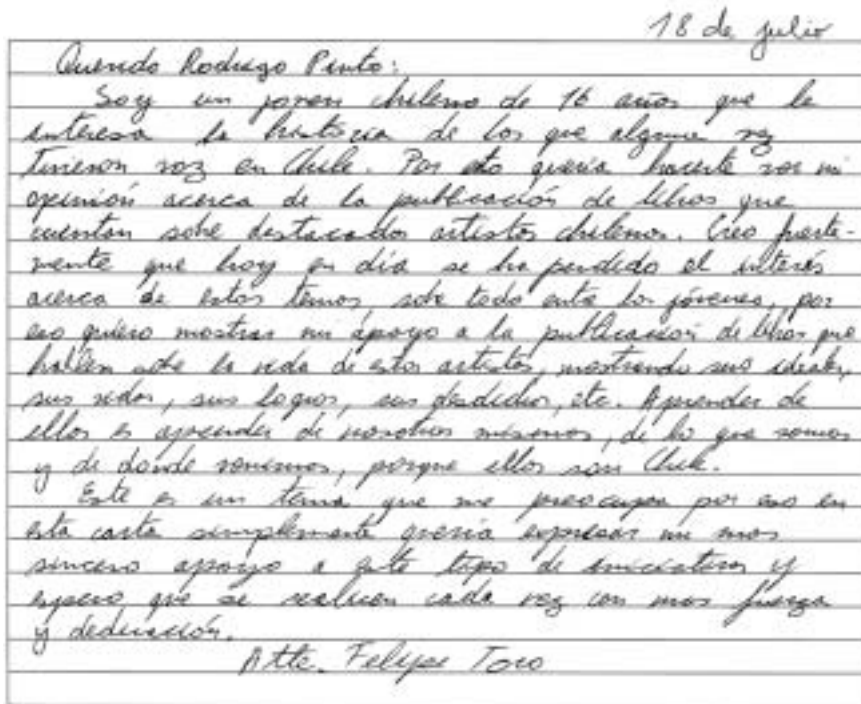 18 de julio
Querido Rodrigo Pinto:
Soy un joven chileno de 16 años que le
interesa la historia de los que alguna vez
tuvieron voz en Chile. Por esto quería hacerte ver mi
opinión acerca de la publicación de libros que
cuentan sobre destacados artistas chilenos. Creo fuerte-
mente que hoy en día se ha perdido el interés
acerca de estos temas, sobre todo entre los jóvenes, por
eso quiero mostrar mi apoyo a la publicación de libros que
hablen sobre la vida de estos artistas, mostrando sus ideales,
sus vidas, sus logros, sus desdichas, etc. Aprender de
ellos es aprender de nosotros mismos, de lo que somos
y de donde venimos, porque ellos son Chile.
Este es un tema que me preocupa por eso en
esta carta simplemente quería expresar mi mas
sincero apoyo a este tipo de iniciativas y
espero que se realicen cada vez con mas fuerza
y dedicación.
Atte. Felipe Toro